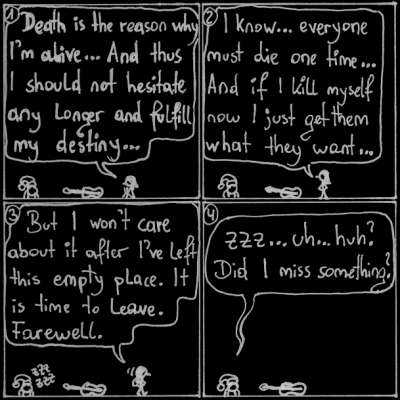 1
Death is the reason why
I'm alive... And thus
I should not hesitate
any longer and fulfill
my destiny...
2
I know... everyone
must die one time...
And if I kill myself
now I just get them
what they want...
3
But I won't care
about it after I've left
this empty place. It
is time to leave.
Farewell.
zzz
zzz
4
zzz... uh... huh?
Did I miss something?